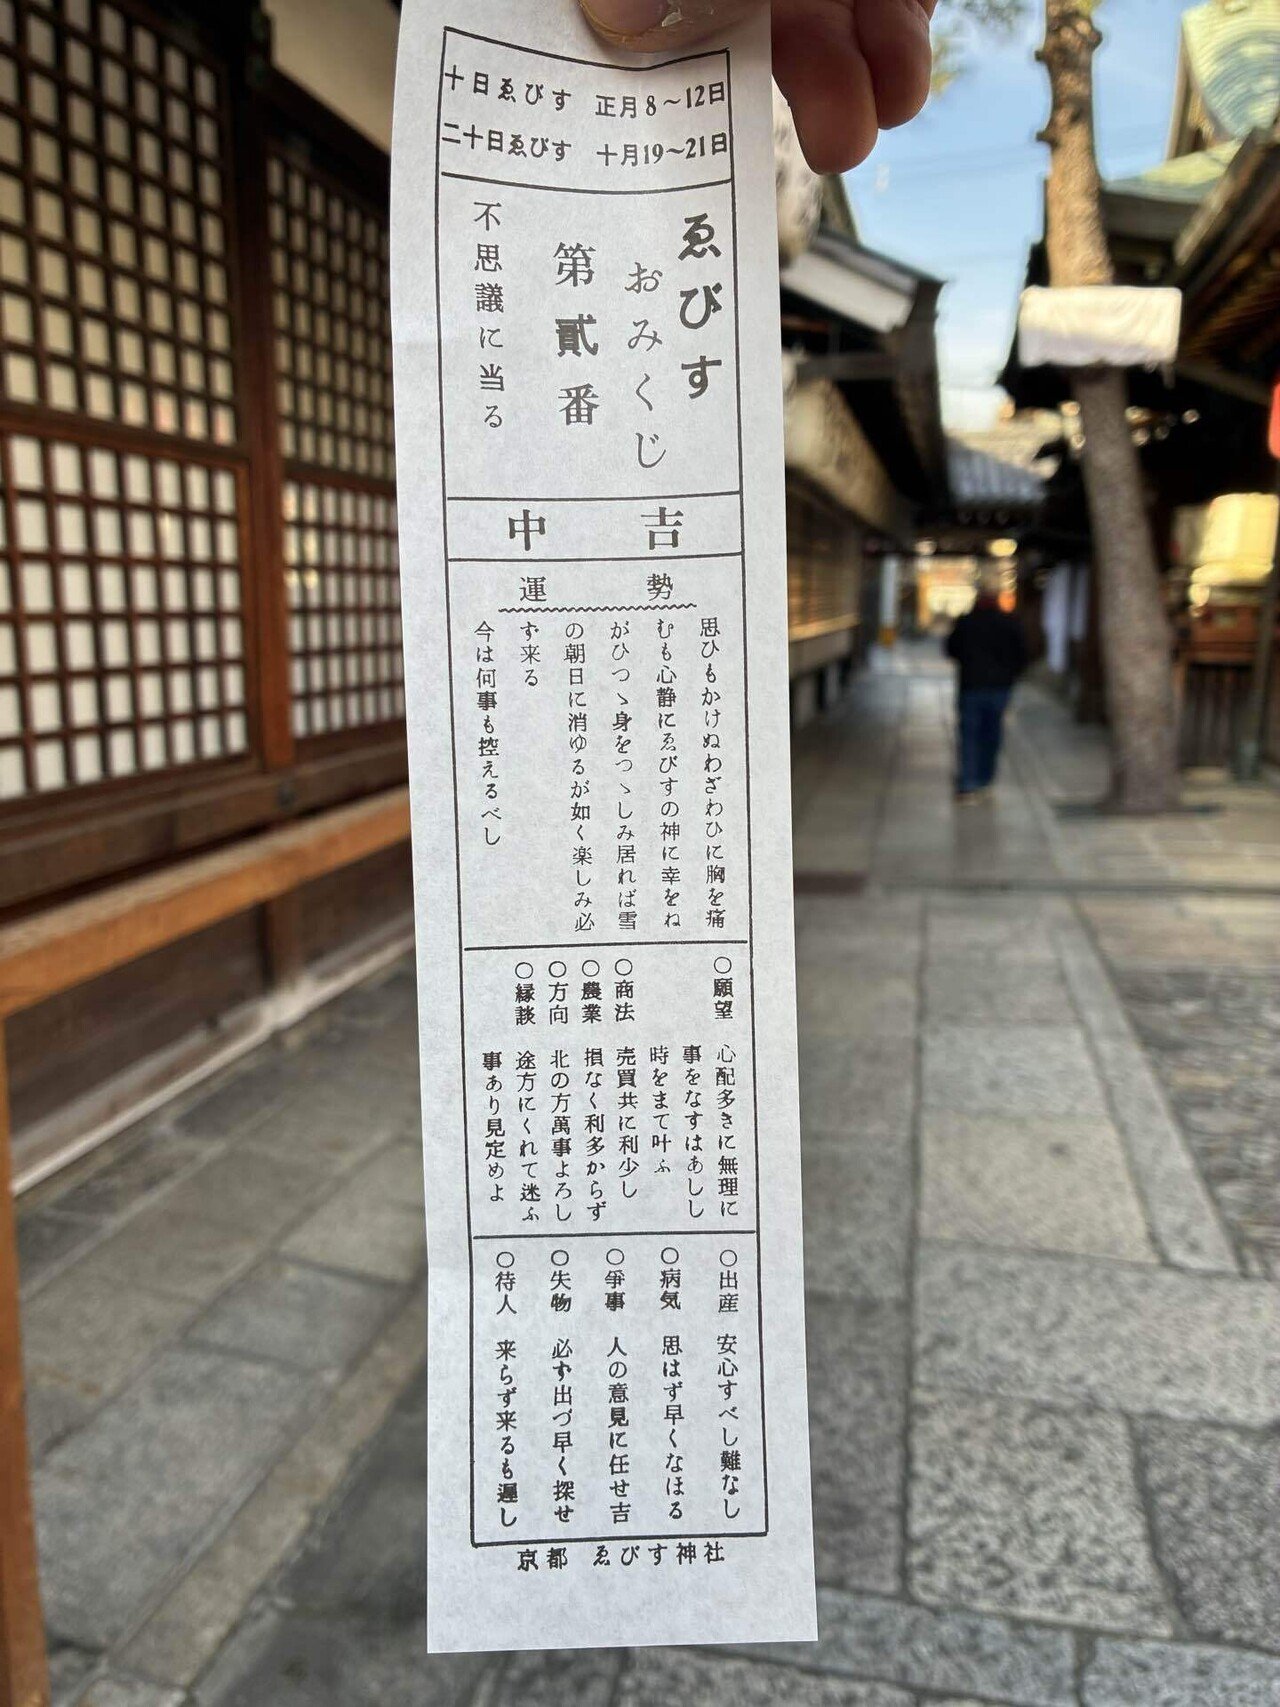 十日ゑびす 正月8～12日
二十日ゑびす 十月19～21日
ゑびす
おみくじ
第貳番
不思議に当る
中吉
運勢
思ひもかけぬわざわひに胸を痛
むも心静にゑびすの神に幸をね
がひつゝ身をつゝしみ居れば雪
の朝日に消ゆるが如く楽しみ必
ず来る
今は何事も控えるべし
○願望 心配多きに無理に
事をなすはあしし
時をまて叶ふ
○商法 売買共に利少し
○農業 損なく利多からず
○方向 北の方萬事よろし
○縁談 途方にくれて迷ふ
事あり見定めよ
○出産 安心すべし難なし
○病気 思はず早くなほる
○爭事 人の意見に任せ吉
○失物 必ず出づ早く探せ
○待人 来らず来るも遅し
京都 ゑびす神社